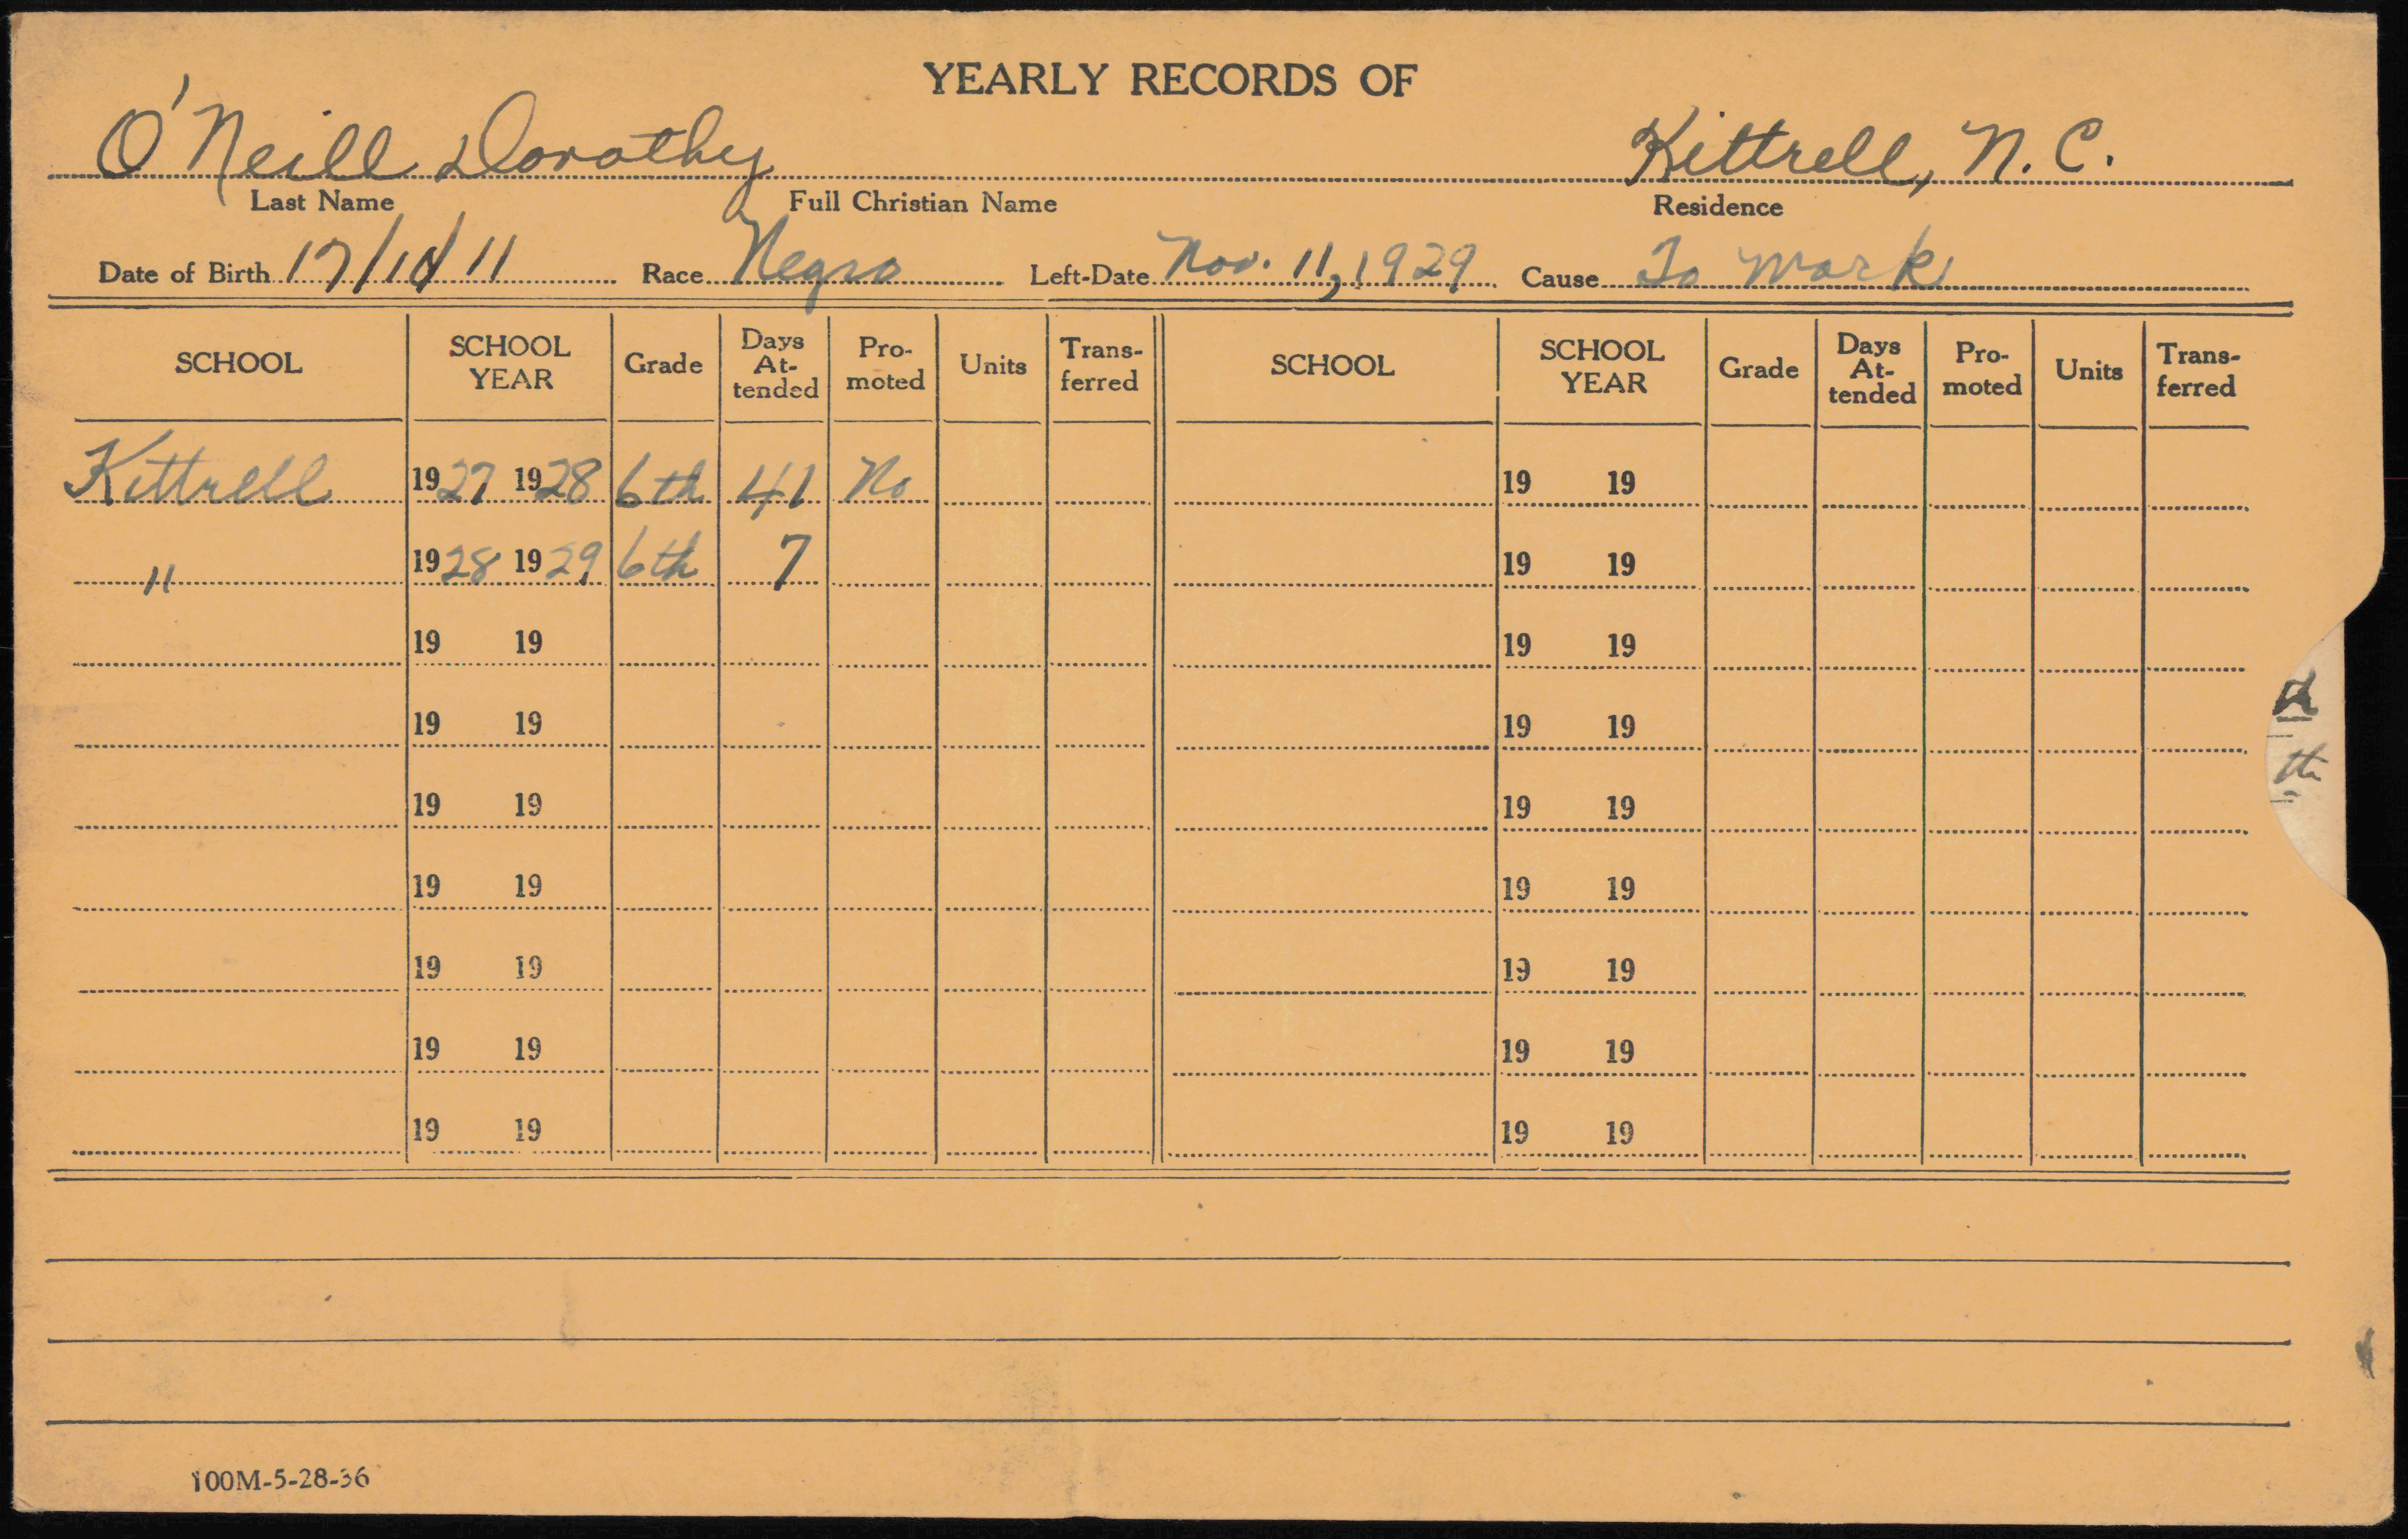 YEARLY RECORDS OF
O'Neill Dorothy Kittrell, N. C.
Last Name Full Christian Name Residence
Date of Birth 17/10/11 Race Negro Left-Date Nov. 11, 1929 Cause To Work
SCHOOL SCHOOL YEAR Grade Days At-tended Pro-moted Units Trans-ferred SCHOOL SCHOOL YEAR Grade Days At-tended Pro-moted Units Trans-ferred
Kittrell 1927 1928 6th 41 No 19 19
" 1928 1929 6th 7 19 19
19 19 19 19
19 19 19 19
19 19 19 19
19 19 19 19
19 19 19 19
19 19 19 19
19 19 19 19
th
100M-5-28-36